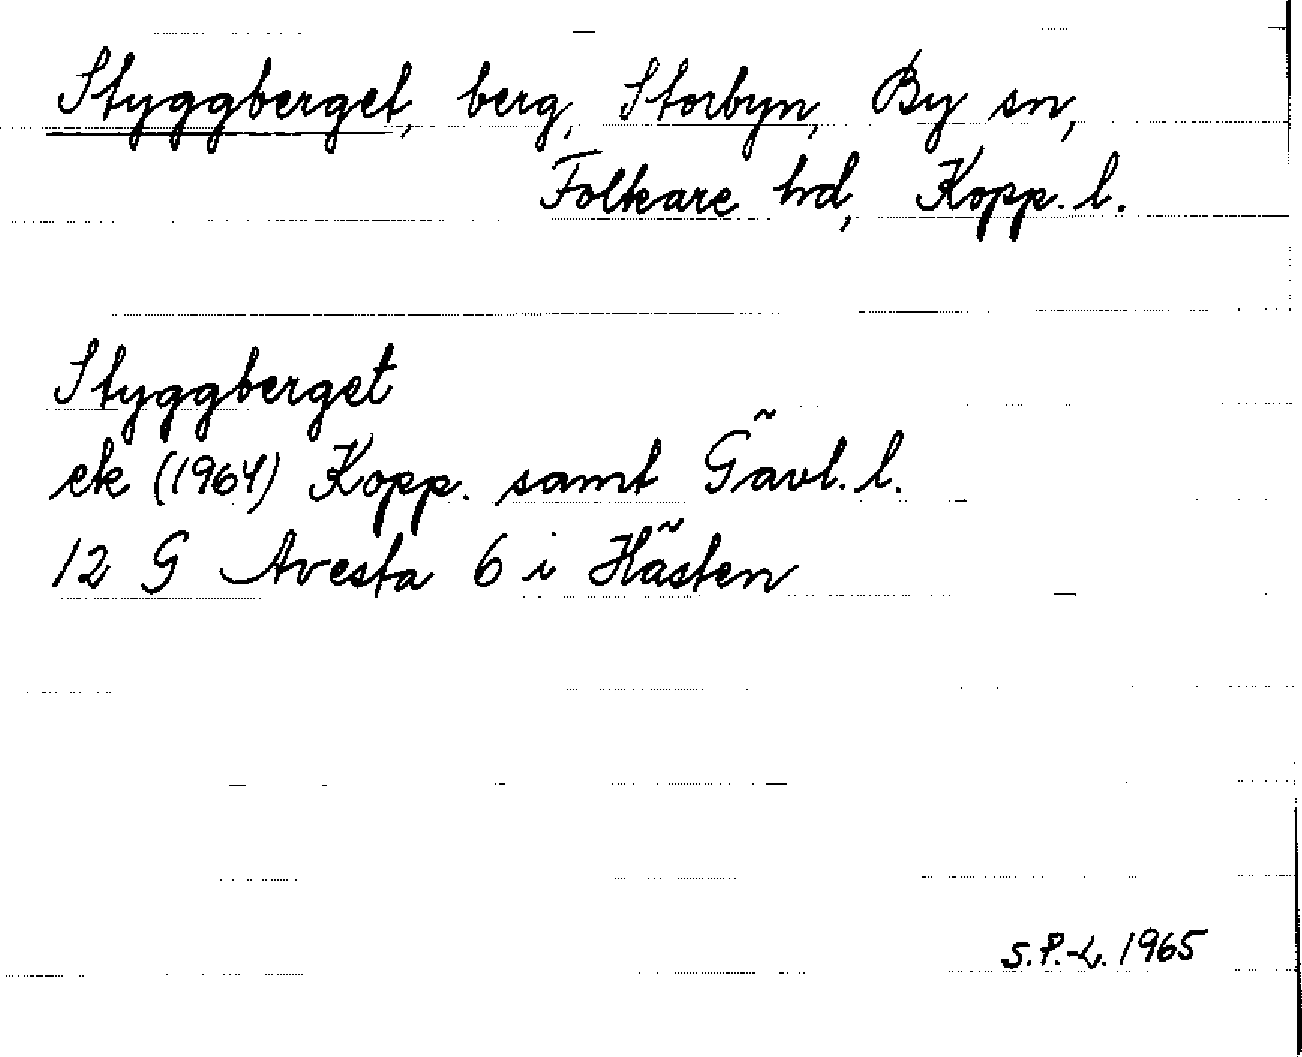 Styggberget, berg, Storbyn, By sn,
Folkare hd, Kopp. l.
Styggberget
ek (1964) Kopp. samt Gävl. l.
12 G Avesta 6 i Hästen
S.P.-L. 1965